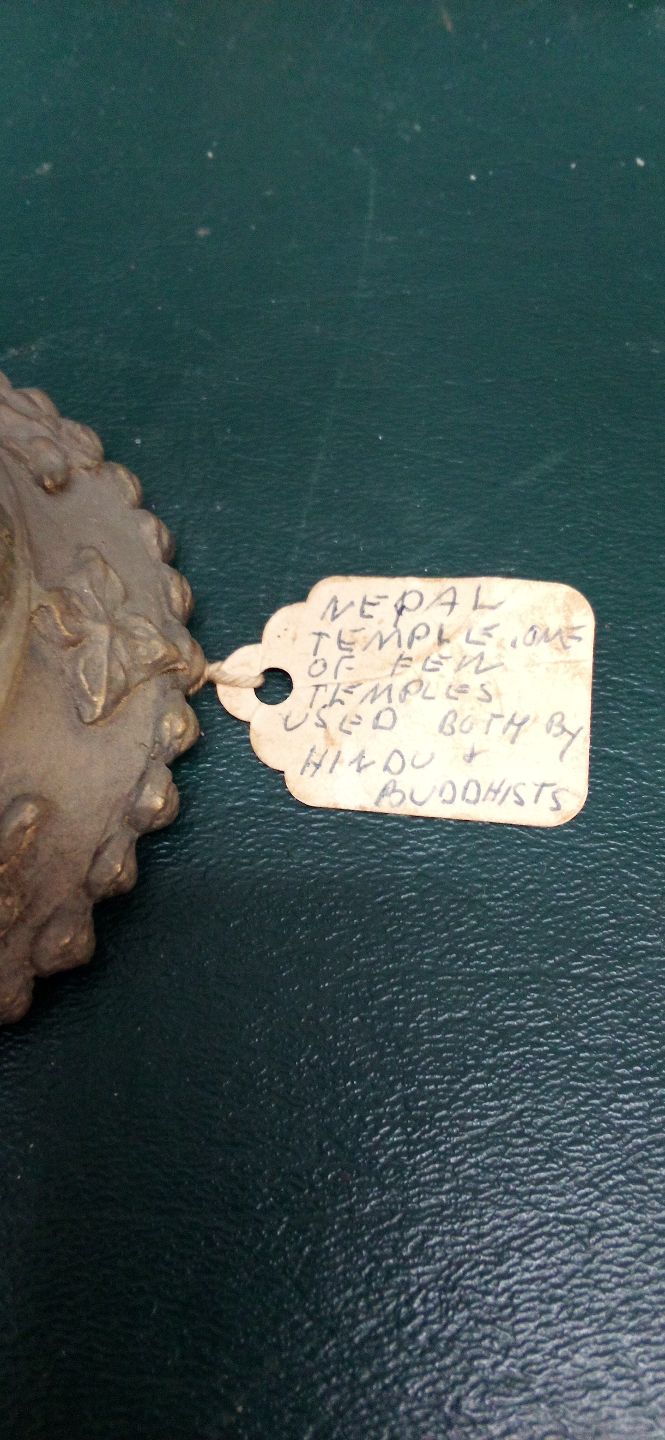 NEPAL
TEMPLE. ONE
OF FEW
TEMPLES
USED BOTH BY
HINDU +
BUDDHISTS